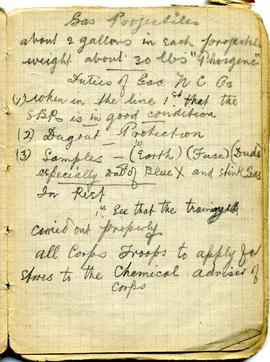 Gas Projectiles
about 2 gallons in each projectile
weight about 30 lbs "Phosgene"
Duties of Gas N C Os
(1) when in the line 1st that the
SBRs is in good condition
(2) Dugout - Protection
(3) Samples - (Earth) (Fuse) Duds
especially out of Blue X and stink Gas
In Rest
1st See that the training is
carried out properly
all Corps Troops to apply for
stores to the Chemical adviser of
Corps